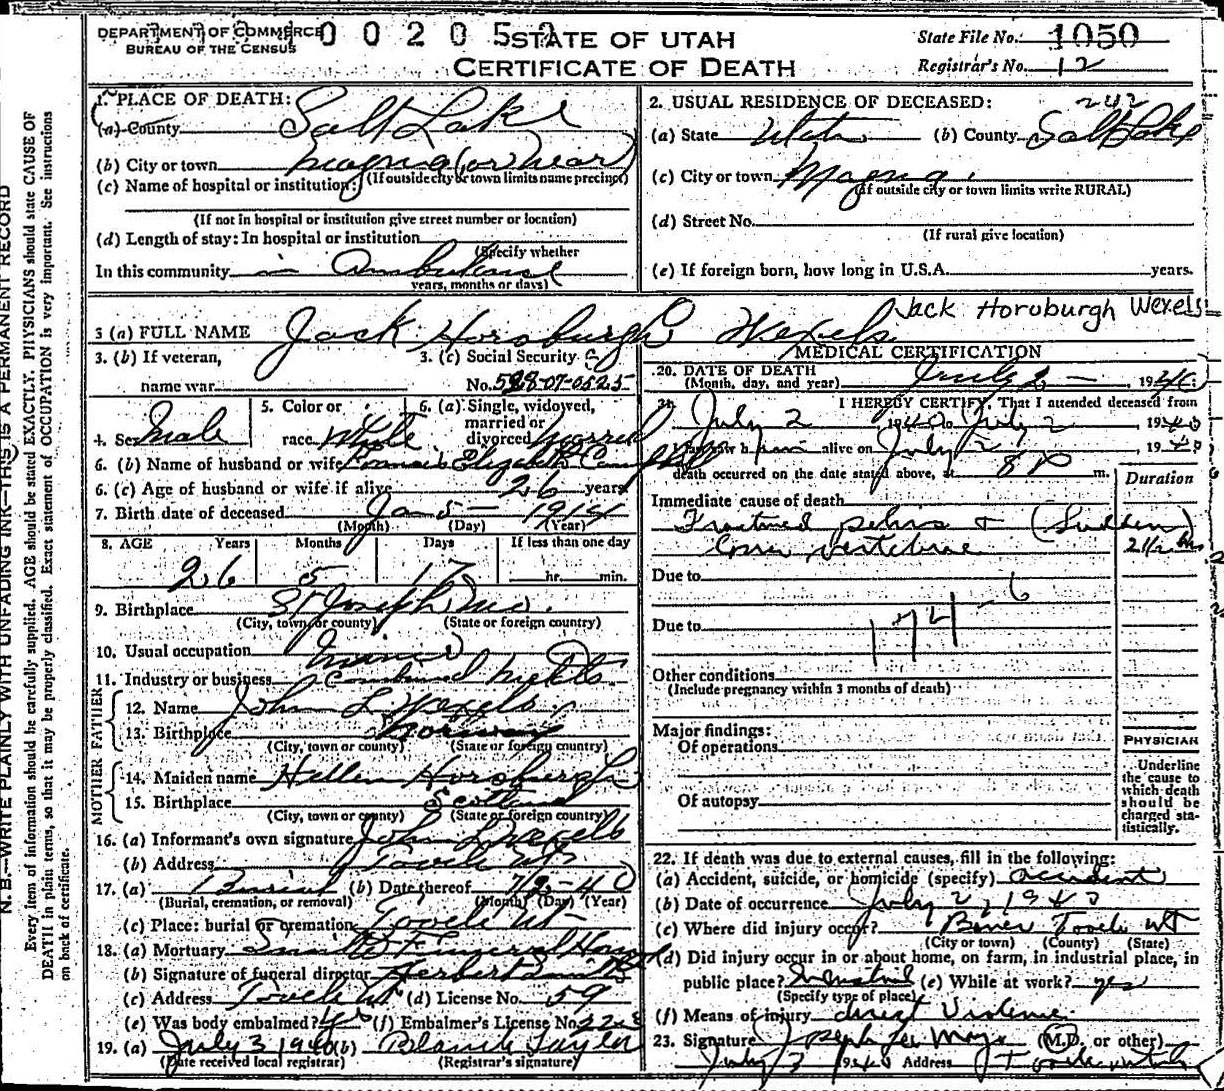 DEPARTMENT OF COMMERCE
BUREAU OF THE CENSUS
0 0 2 0 5 2
STATE OF UTAH
CERTIFICATE OF DEATH
State File No. 1050
Registrar's No. 12
N. B.—WRITE PLAINLY WITH UNFADING INK—THIS IS A PERMANENT RECORD
Every item of information should be carefully supplied. AGE should be stated EXACTLY. PHYSICIANS should state CAUSE OF
DEATH in plain terms, so that it may be properly classified. Exact statement of OCCUPATION is very important. See instructions
on back of certificate.
1. PLACE OF DEATH:
(a) County Salt Lake
(b) City or town Magna (or near)
(If outside city or town limits name precinct)
(c) Name of hospital or institution:
(If not in hospital or institution give street number or location)
(d) Length of stay: In hospital or institution
(Specify whether
In this community in Ambulance
years, months or days)
2. USUAL RESIDENCE OF DECEASED: 242
(a) State Utah (b) County Salt Lake
(c) City or town Magna
(If outside city or town limits write RURAL)
(d) Street No.
(If rural give location)
(e) If foreign born, how long in U.S.A. years.
3 (a) FULL NAME Jack Horsburgh Wexels
Jack Horoburgh Wexels
3. (b) If veteran,
name war
3. (c) Social Security
No. 528-07-0525
4. Sex Male
5. Color or
race White
6. (a) Single, widowed,
married or
divorced Married
6. (b) Name of husband or wife Francis Elizabeth
6. (c) Age of husband or wife if alive 26 years
7. Birth date of deceased Jan 5 - 1914
(Month) (Day) (Year)
8. AGE Years Months Days If less than one day
26 5 17 hr. min.
9. Birthplace St Joseph Mo.
(City, town or county) (State or foreign country)
10. Usual occupation Miner
11. Industry or business Combined Metals
FATHER
12. Name John L Wexels
13. Birthplace Norway
(City, town or county) (State or foreign country)
MOTHER
14. Maiden name Hellen Horsburgh
15. Birthplace Scotland
(City, town or county) (State or foreign country)
16. (a) Informant's own signature John L Wexels
(b) Address Tooele Ut
17. (a) Burial (b) Date thereof 7/2-40
(Burial, cremation, or removal) (Month) (Day) (Year)
(c) Place: burial or cremation Tooele Ut
18. (a) Mortuary Smith Funeral Home
(b) Signature of funeral director Herbert Smith
(c) Address Tooele Ut (d) License No. 59
(e) Was body embalmed? Yes (f) Embalmer's License No.
19. (a) July 3 1940 (b)
(Date received local registrar) (Registrar's signature)
MEDICAL CERTIFICATION
20. DATE OF DEATH
(Month, day, and year) July 2 - , 1940
21. I HEREBY CERTIFY, That I attended deceased from
July 2 1940 to July 2 1940
I last saw him alive on July 2 1940
death occurred on the date stated above, at 8 P m.
Duration
Immediate cause of death
Fractured pelvis + (Sudden)
vertebrae 2 1/2 hrs
Due to
Due to
174-6
Other conditions
(Include pregnancy within 3 months of death)
Major findings:
Of operations
Of autopsy
PHYSICIAN
Underline
the cause to
which death
should be
charged sta-
tistically.
22. If death was due to external causes, fill in the following:
(a) Accident, suicide, or homicide (specify) accident
(b) Date of occurrence July 2, 1940
(c) Where did injury occur? Tooele Ut
(City or town) (County) (State)
(d) Did injury occur in or about home, on farm, in industrial place, in
public place? Industrial (e) While at work? yes
(Specify type of place)
(f) Means of injury direct Violence
23. Signature Joseph (M.D. or other)
July 3 1940 Address Tooele Utah